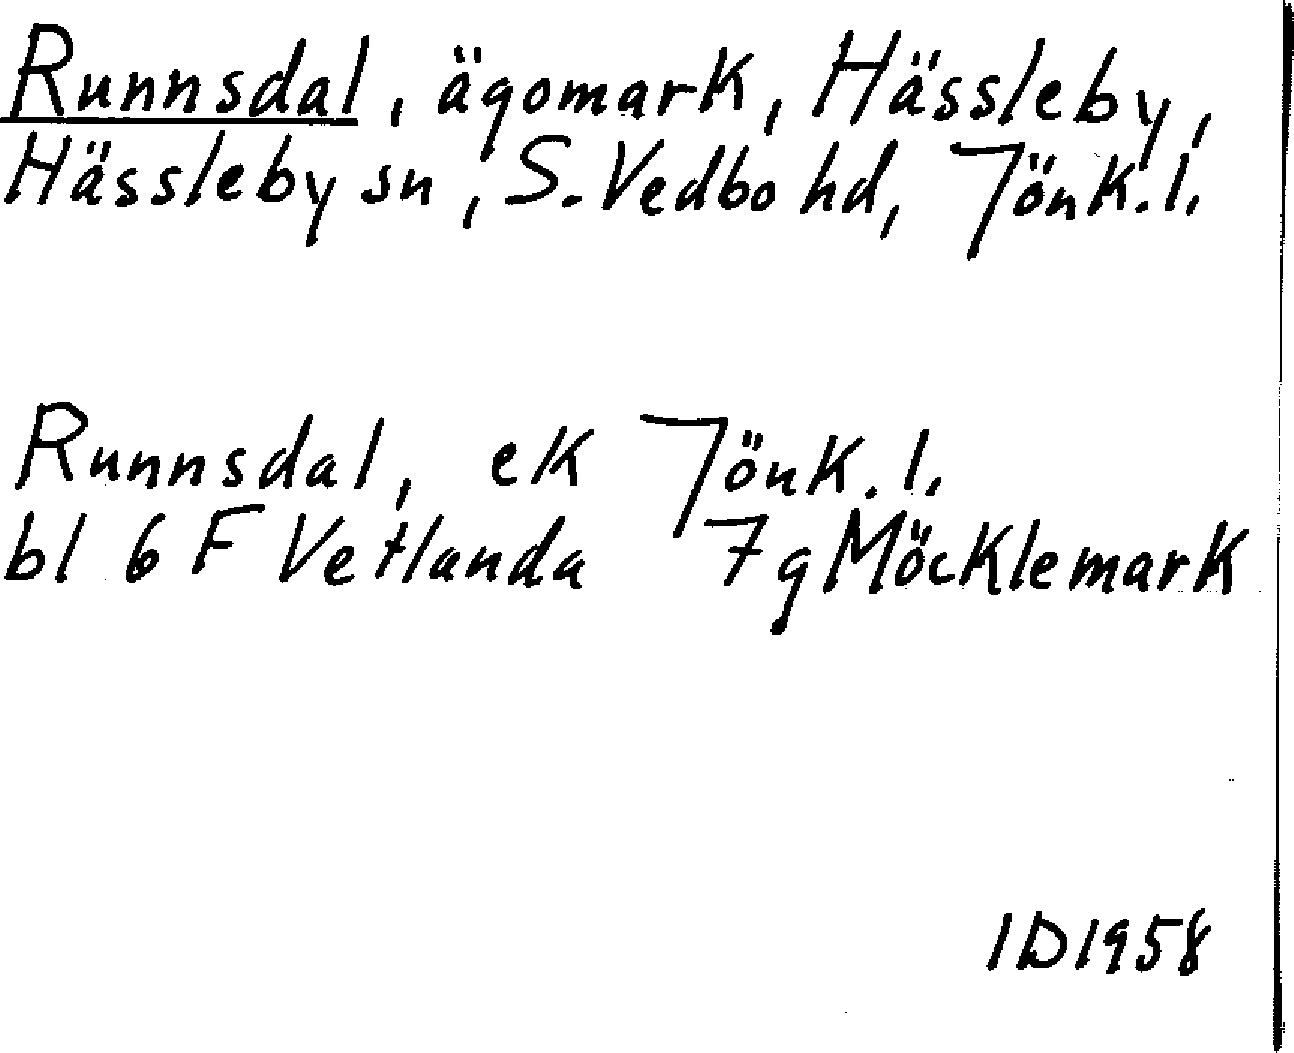 Runnsdal, ägomark, Hässleby,
Hässleby sn, S. Vedbo hd, Jönk. l.
Runnsdal, ek Jönk. l.
bl 6 F Vetlanda 7g Möcklemark
ID 1958